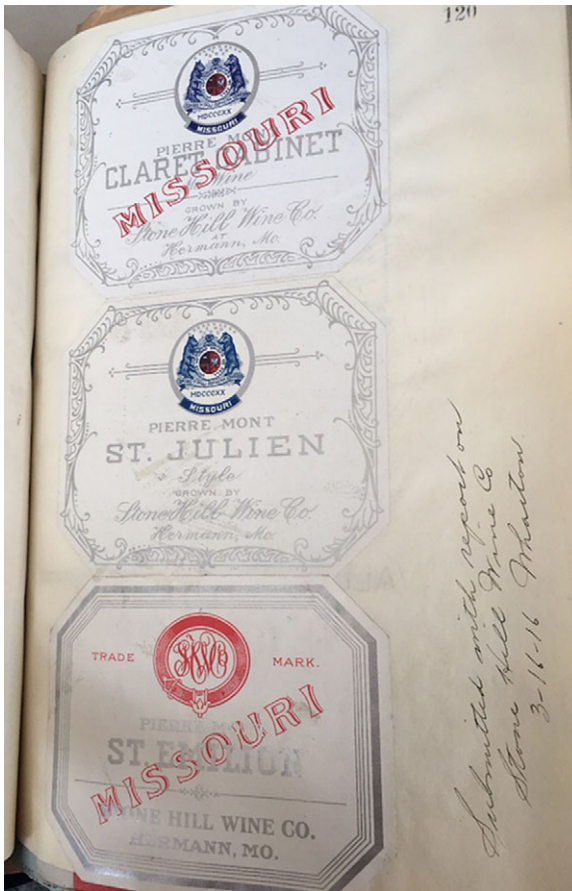 120
MDCCCXX
MISSOURI
PIERRE MONT
CLARET CABINET
Wine
MISSOURI
GROWN BY
Stone Hill Wine Co.
AT
Hermann, Mo.
MDCCCXX
MISSOURI
PIERRE MONT
ST. JULIEN
Style
GROWN BY
Stone Hill Wine Co.
Hermann, Mo.
TRADE MARK.
PIERRE MONT
ST. EMILION
MISSOURI
STONE HILL WINE CO.
HERMANN, MO.
Submitted with report on
Stone Hill Wine Co
3-16-16 Wharton